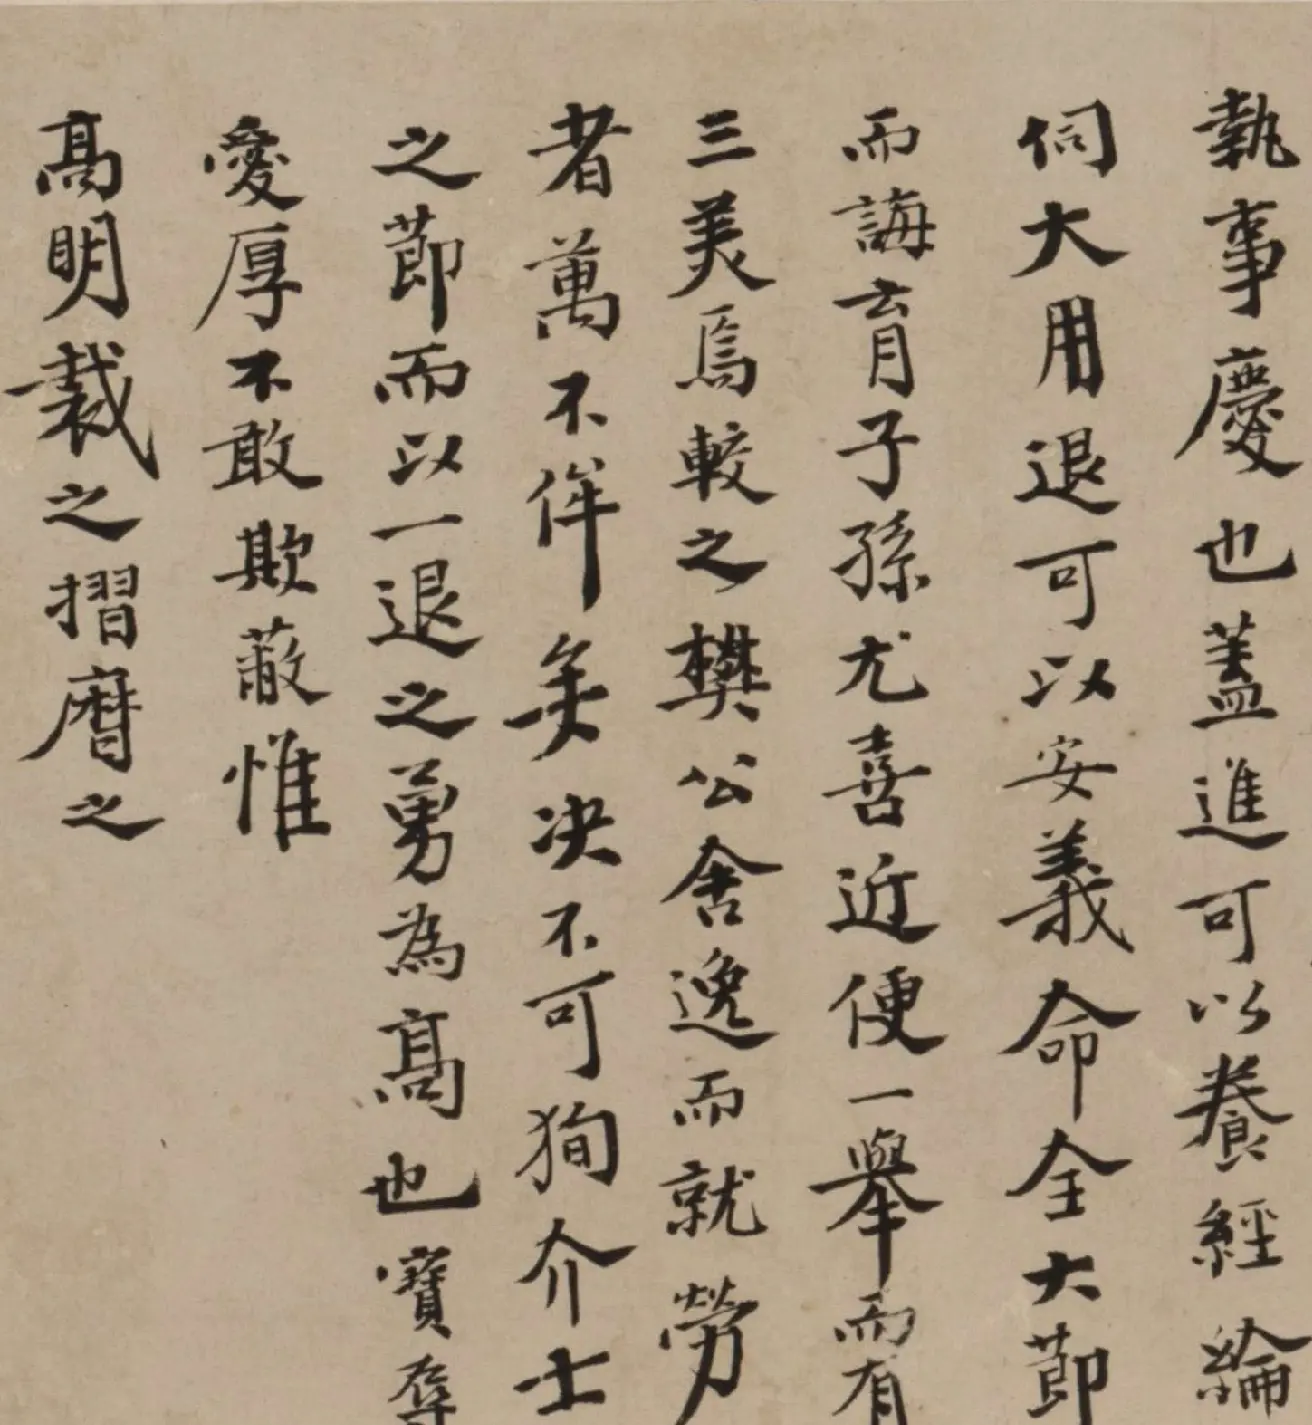 執事慶也蓋進可以養經綸
伺大用退可以安義命全大節
而誨育子孫尤喜近便一舉而有
三美焉較之樊公舍逸而就勞
者萬不侔矣決不可狥介士
之節而以一退之勇為高也寶辱
愛厚不敢欺蔽惟
高明裁之摺曆之